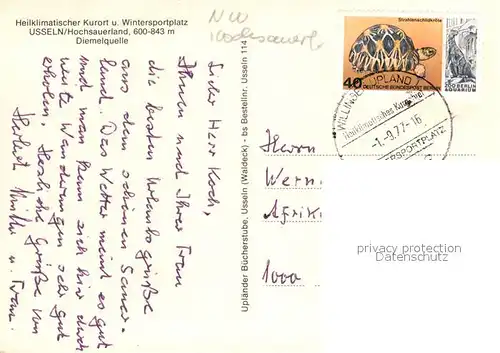 Heilklimatischer Kurort u. Wintersportplatz
USSELN/Hochsauerland, 600-843 m
Diemelquelle
NW
Hochsauerl.
Strahlenschildkröte
40
DEUTSCHE BUNDESPOST BERLIN
ZOO BERLIN
AQUARIUM
WILLINGEN (UPLAND)
Heilklimatisches Kurgebiet
-1.-9.77-16
WINTERSPORTPLATZ
Uplander Bücherstube, Usseln (Waldeck) - bs Bestellnr. Usseln 114
Lieber Herr Koch,
Ihnen und Ihrer Frau
die besten Urlaubsgrüße
aus dem schönen Sauer-
land. Das Wetter meint es gut
und man kann sich hier durch
weite Wanderungen sehr gut
erholen. Herzliche Grüße von
Herbert u. Frau.
Herrn
Wern
Afrik
1000
privacy protection
Datenschutz